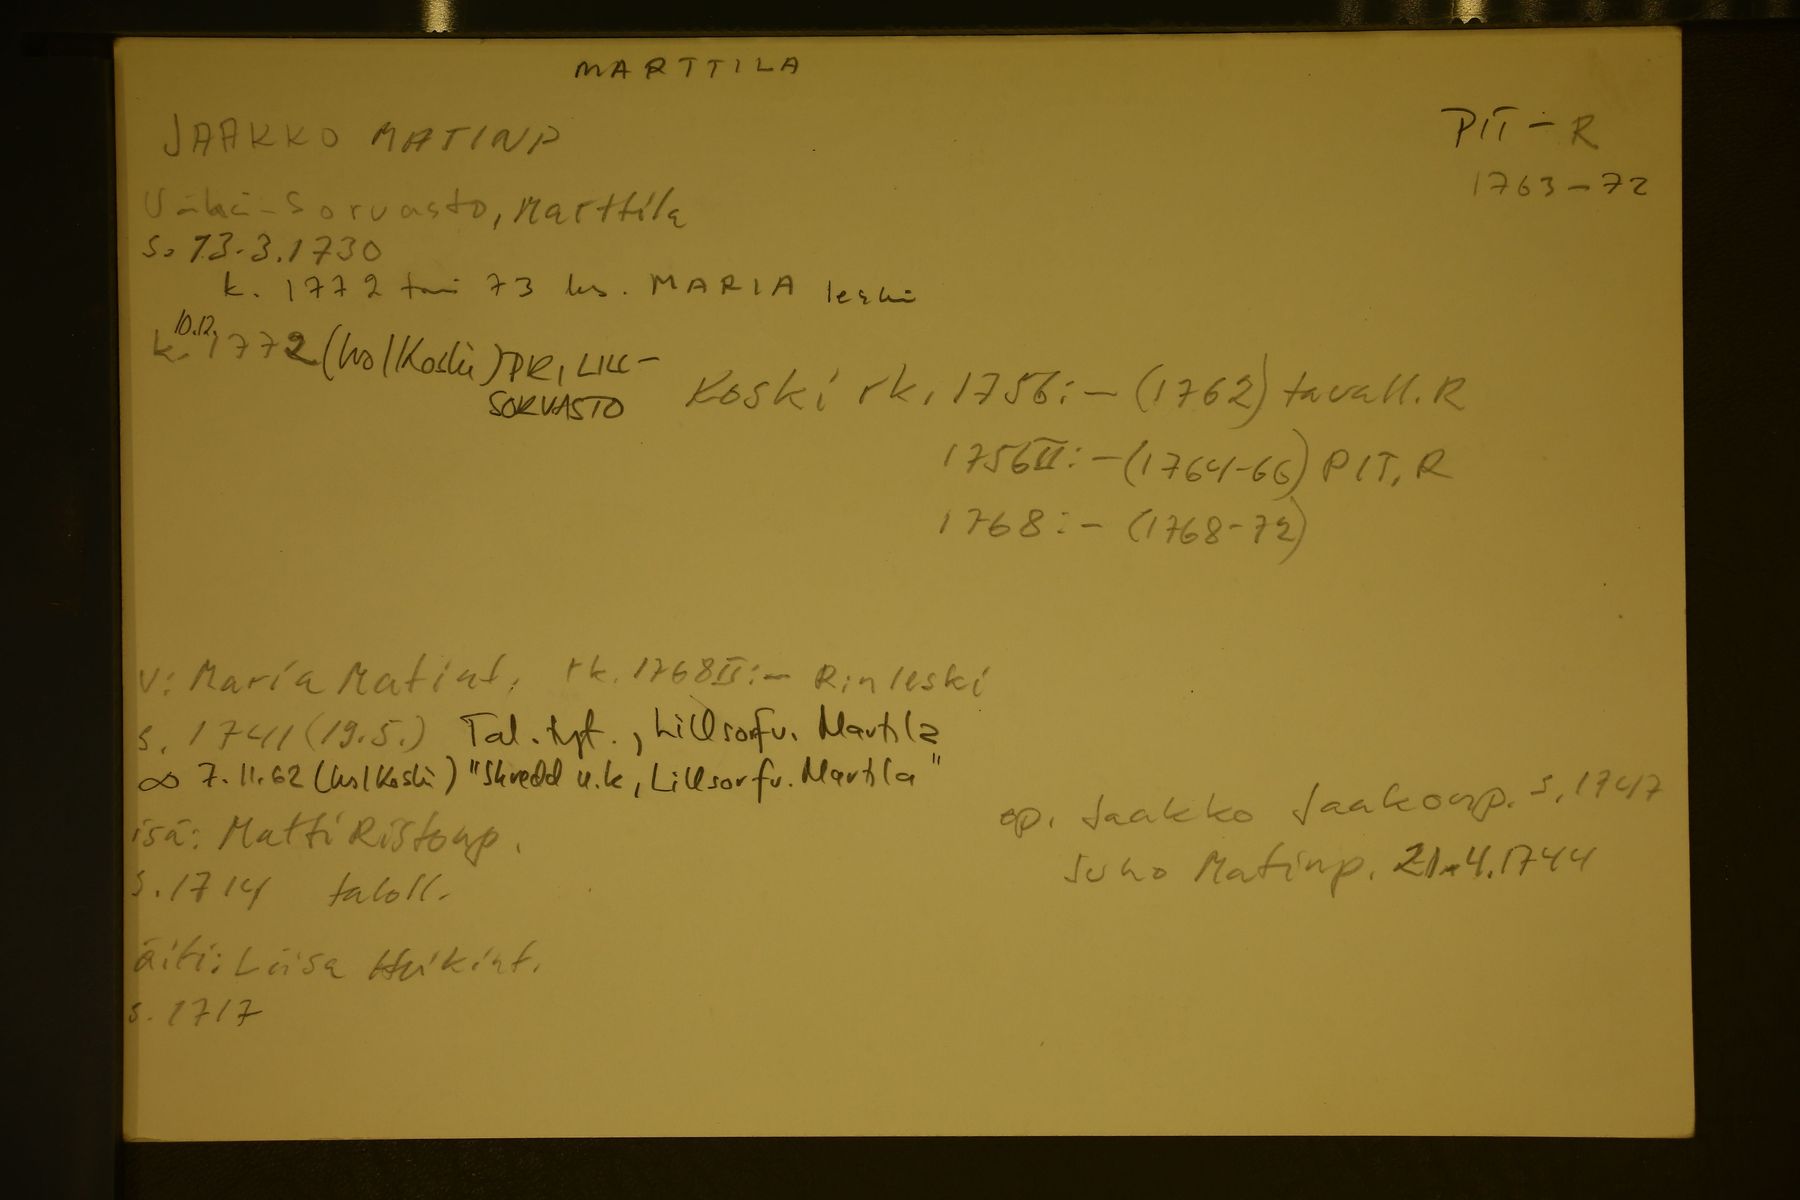 MARTTILA
JAAKKO MATINP
PIT-R
1763-72
Vähä-Sorvasto, Marttila
s. 13.3.1730
k. 1772 tai 73 ks. MARIA leski
10.12.
k. 1772 (hs/Koski) PR, LILL-
SORVASTO
Koski rk. 1756:- (1762) tavall. R
1756II:- (1764-66) PIT, R
1768:- (1768-72)
v: Maria Matint. rk. 1768II:- R:n leski
s. 1741 (19.5.) Tal. tyt., Lillsorfv. Martila
∞ 7.11.62 (hs/Koski) "Skredd u.k, Lillsorfv. Martila"
isä: Matti Ristonp.
s. 1714 taloll.
äiti: Liisa Heikint.
s. 1717
op. Jaakko Jaakonp. s. 1747
Juho Matinp. 21.4.1744